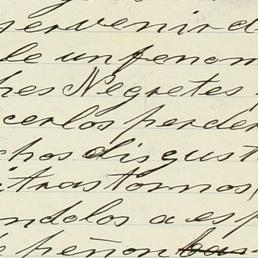 servenir d
de un fenom
hes Negretes
cerlos perder
chos disgust
trastornos,
ndolos a esp
de peñon